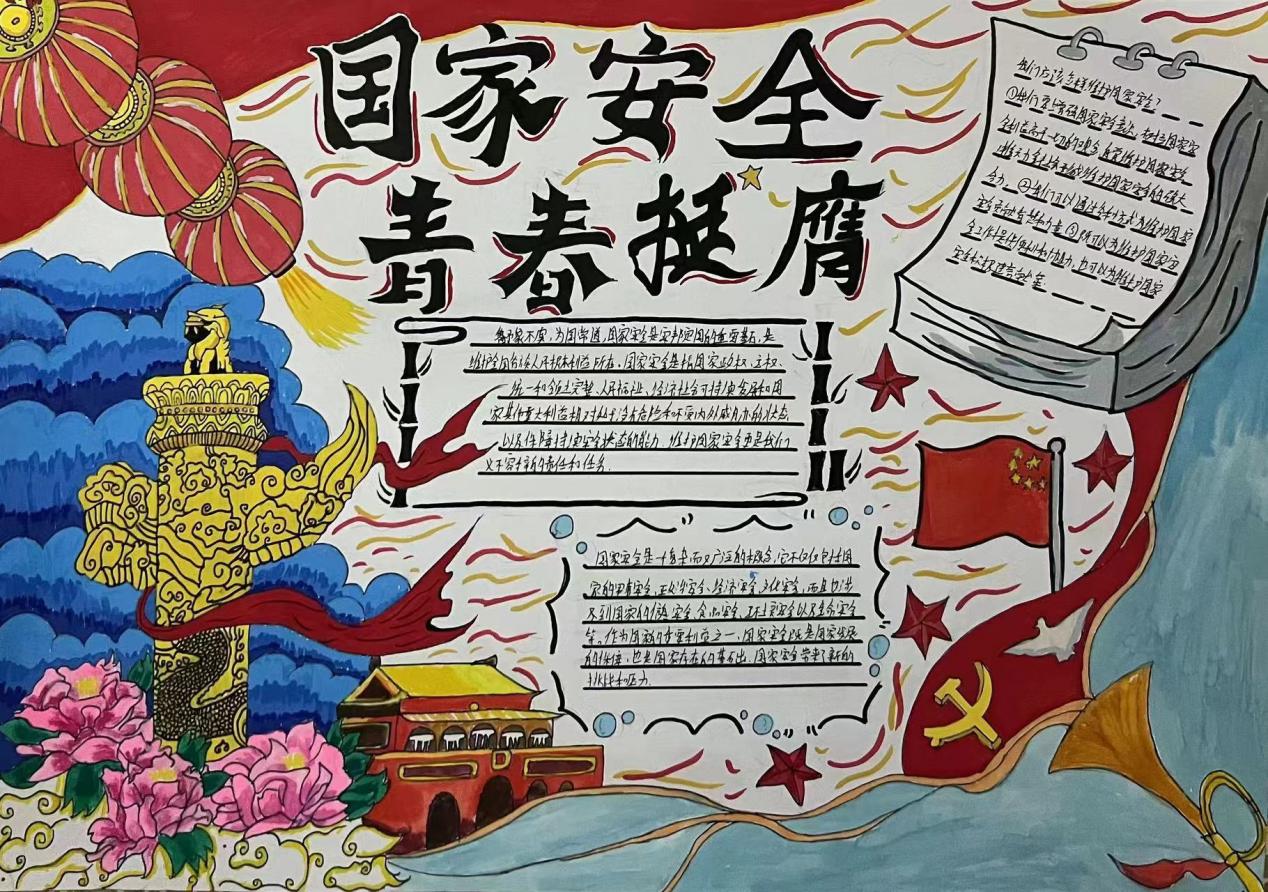 国家安全
青春挺膺
豫不虞，为国常道，国家安全是安邦定国的重要基石，是
维护全国各族人民根本利益所在，国家安全是指国家政权、主权、
统一和领土完整、人民福祉、经济社会可持续发展和国
家其他重大利益相对处于没有危险和不受内外威胁的状态，
以及保障持续安全状态的能力，维护国家安全更是我们
义不容辞的责任和任务。
国家安全是一个复杂而又广泛的概念，它不仅仅包括国
家的军事安全、政治安全、经济安全、文化安全，而且也涉
及到国家的信息安全、食品安全、环境安全以及生命安全
等。作为国家的重要利益之一，国家安全既是国家发展
的保障，也是国家存在的基础。国家安全带来了新的
挑战和压力。
我们应该怎样维护国家安全？
①我们要增强国家安全意识，树立国家安
全利益高于一切的观念，自觉维护国家安全
维护国家安全的强大
合力。②我们可以通过各种方式为维护国家安
③既可以为维护国家安
全工作提供便利和协助，也可以为维护国家
安全积极建言献策。